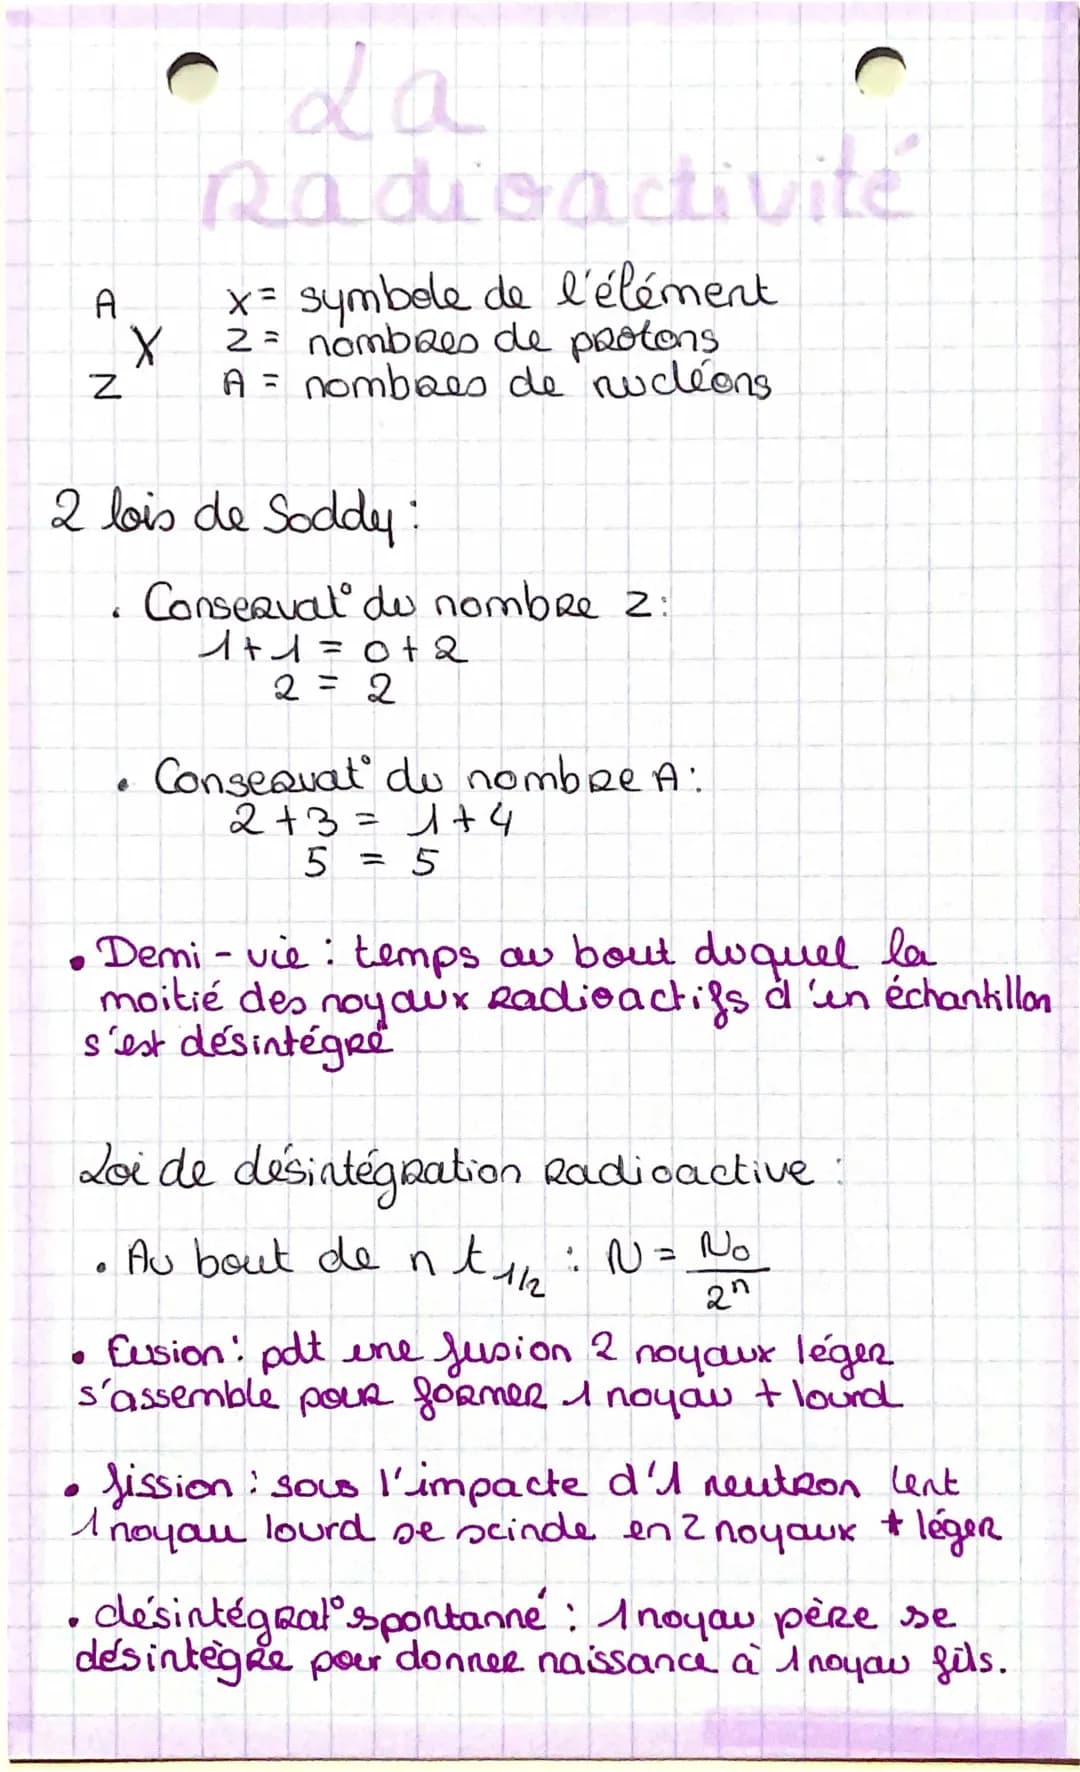 La
Radioactivité
A
X
Z
X = symbole de l'élément
Z = nombres de protons
A = nombres de nucléons
2 lois de Soddy :
. Conservat° du nombre Z :
1 + 1 = 0 + 2
2 = 2
• Conservat° du nombre A :
2 + 3 = 1 + 4
5 = 5
• Demi - vie : temps au bout duquel la
moitié des noyaux radioactifs d'un échantillon
s'est désintégré
Loi de désintégration radioactive :
• Au bout de n t1/2 : N = N0/2^n
• fusion : pdt une fusion 2 noyaux léger
s'assemble pour former 1 noyau + lourd
• fission : sous l'impacte d'1 neutron lent
1 noyau lourd se scinde en 2 noyaux + léger
• désintégrat° spontanné : 1 noyau père se
désintègre pour donner naissance à 1 noyau fils.